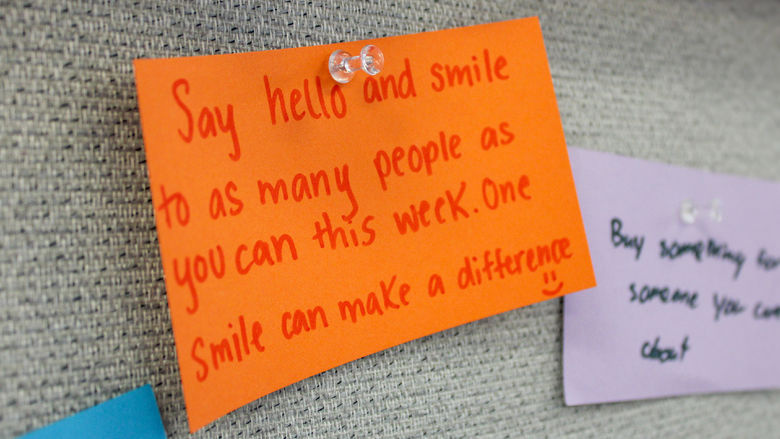 Say hello and smile
to as many people as
you can this week. One
smile can make a difference
Buy something for
someone you care
about